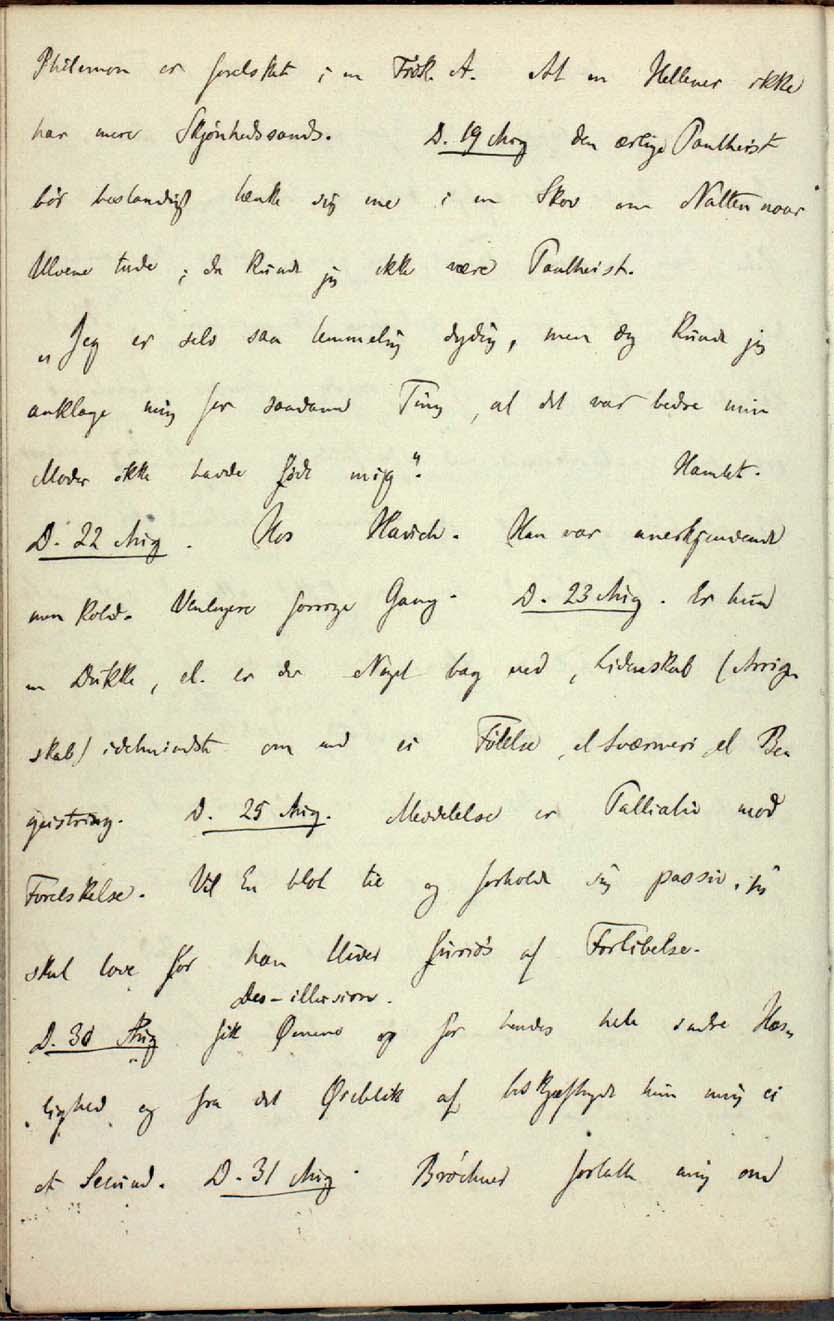 Philemon er forelsket i en Frøk. A. At en Hellener ikke
har mere Skjønhedssands. D. 19 Aug den ærlige Pantheist
bør bestandigt tænke sig ene i en Skov om Natten naar
Ulvene tude; da kunde jeg ikke være Pantheist.
„Jeg er selv saa temmelig dydig, men dog kunde jeg
anklage mig for saadanne Ting, at det var bedre min
Moder ikke havde født mig“. Hamlet.
D. 22 Aug. Hos Hauch. Han var anerkjendende
men kold. Venligere forrige Gang. D. 23 Aug. Er hun
en Dukke, el. er der Noget bag ved, Lidenskab (Arrig-
skab) idetmindste om end ei Følelse, el Sværmeri, el Be-
geistring. D. 25 Aug. Meddelelse er Palliativ mod
Forelskelse. Vil En blot tie og forholde sig passiv, jeg
skal love for han bliver furiøs af Forlibelse.
Des-illusion.
D. 30 Aug fik Øinene op for hendes hele indre Hæs-
lighed og fra det Øieblik af beskjæftigede hun mig ei
et Secund. D. 31 Aug. Brøchner fortalte mig om